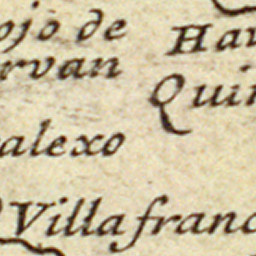 ojo de
rvan
Hav
Quin
alexo
Villafranc